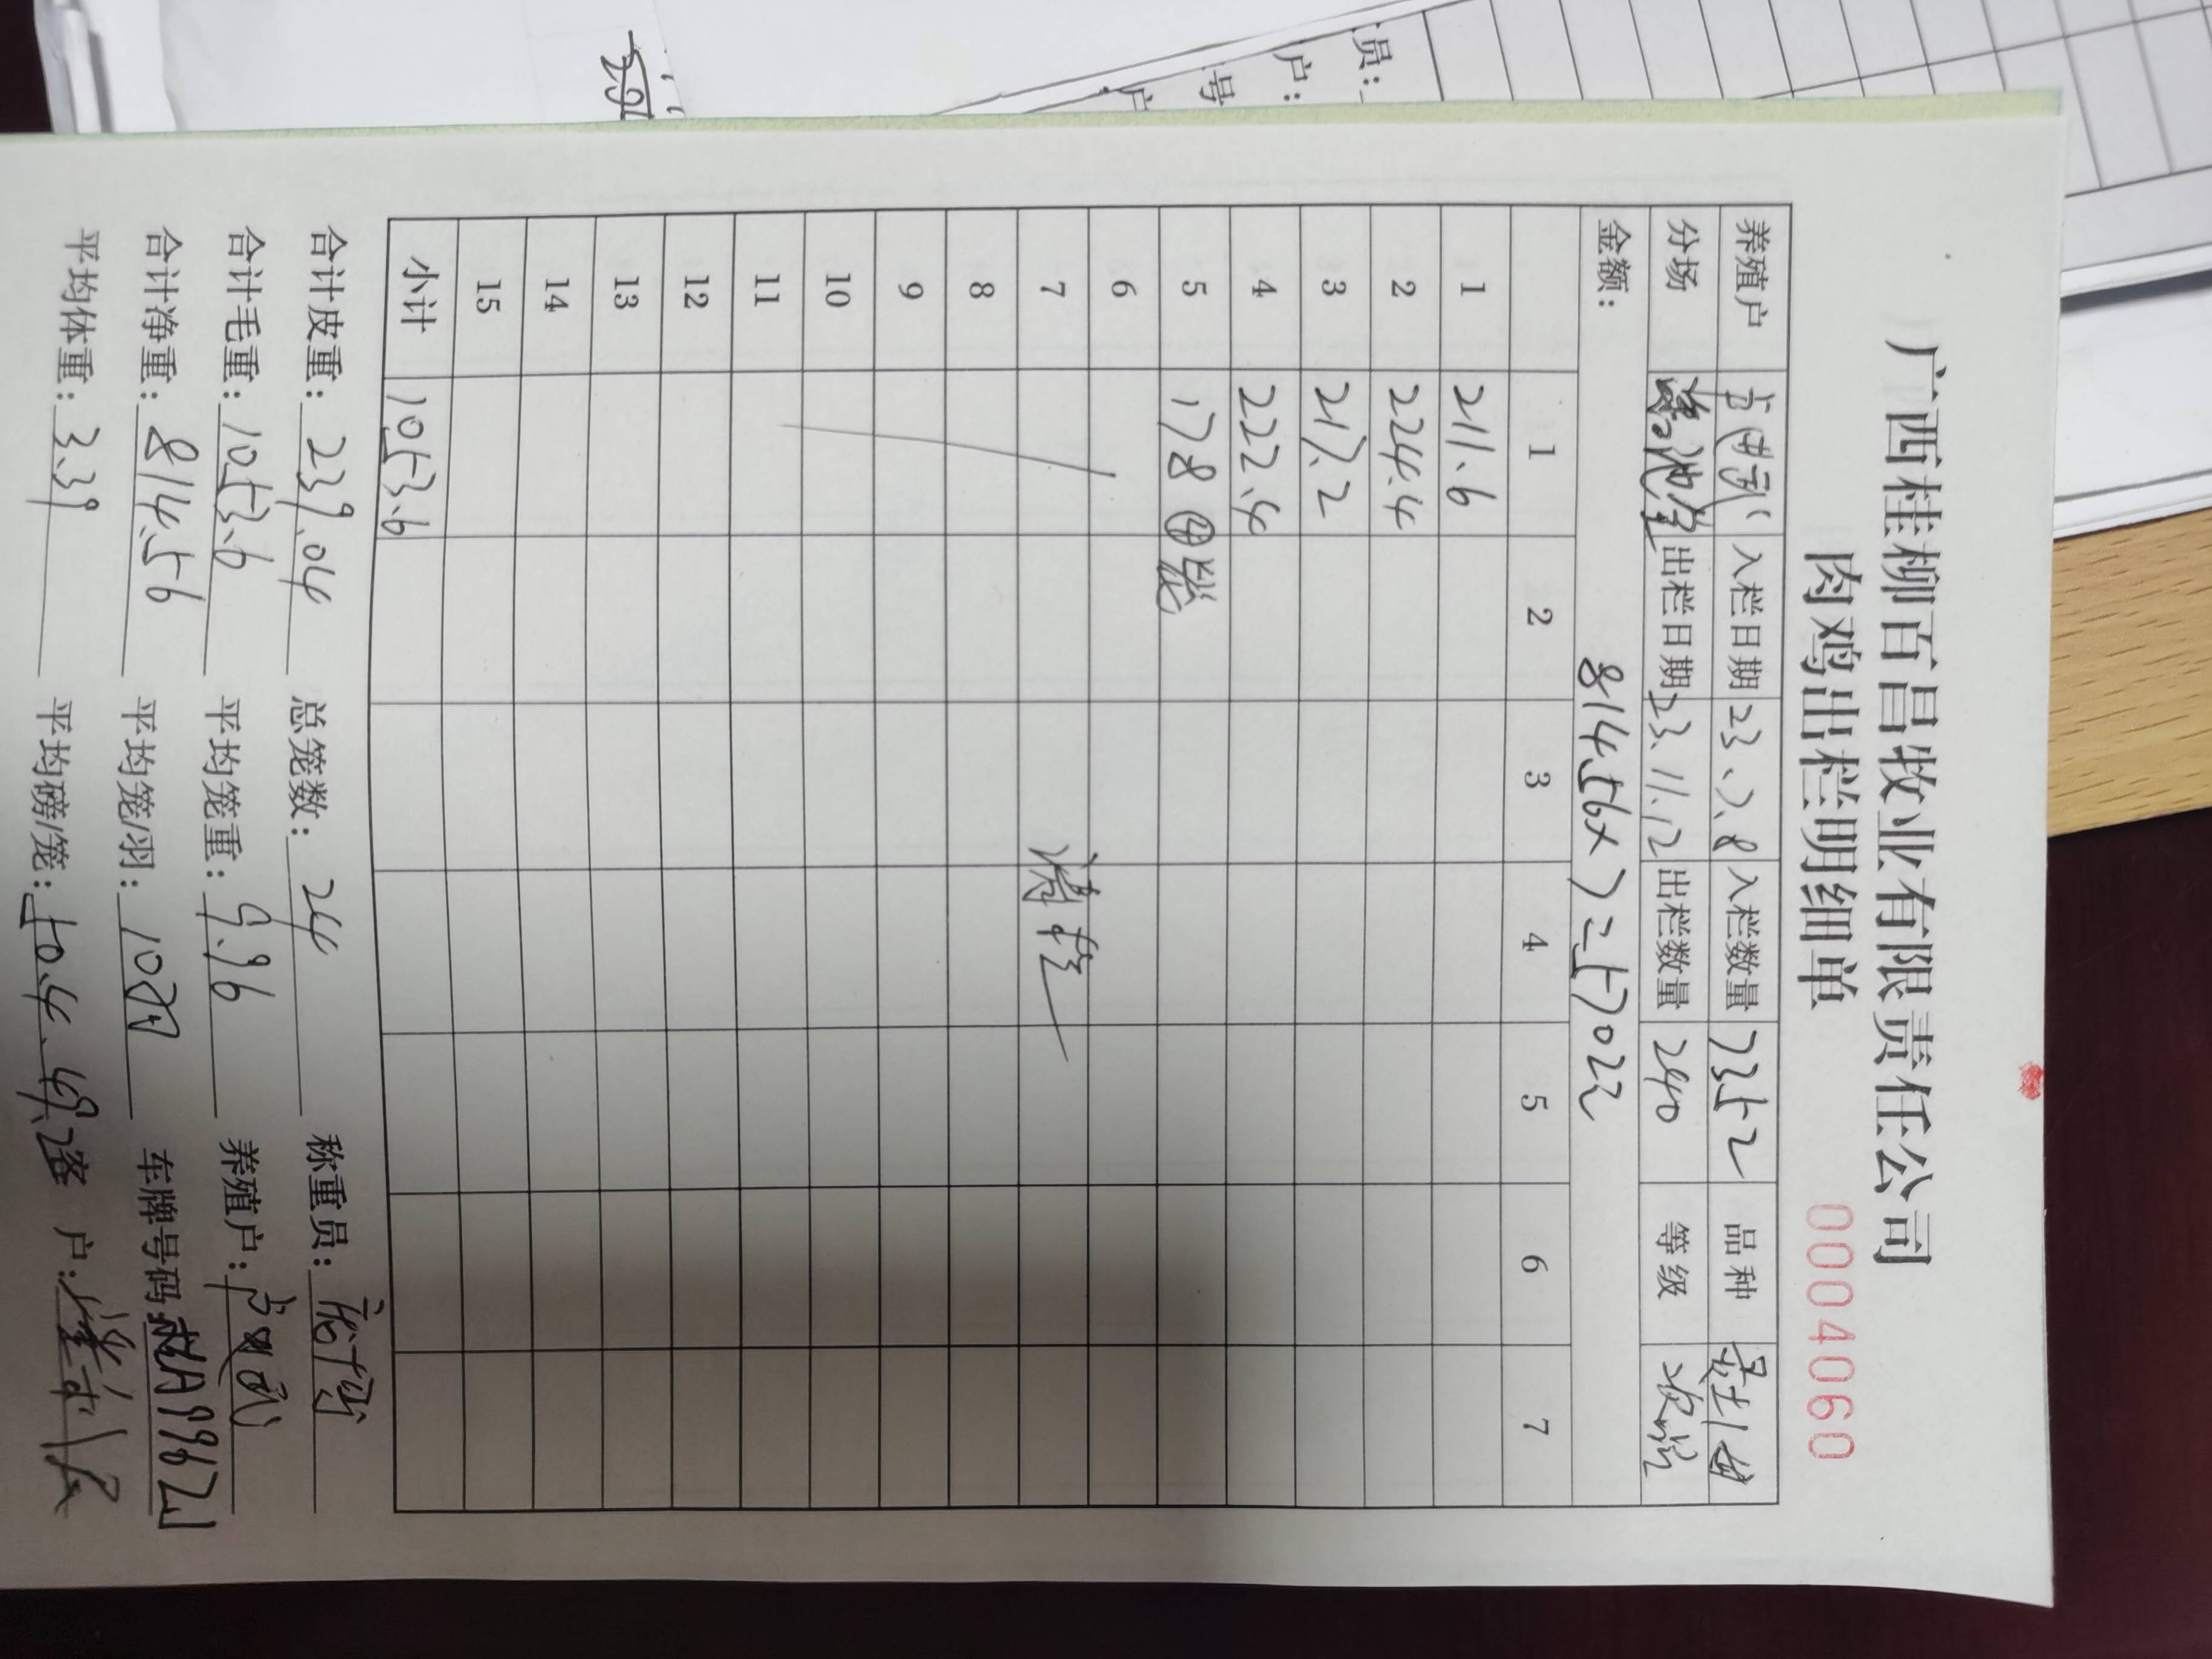 广西桂柳百昌牧业有限责任公司
肉鸡出栏明细单 0004060
养殖户 入栏日期 23.7.8 入栏数量 7352 品种
分场 出栏日期 23.11.12 出栏数量 240 等级 次级
金额: 814.56×7=5702元
1 2 3 4 5 6 7
1 211.6
2 224.4
3 217.2
4 222.4
5 178 ④笼
6
7 清栏
8
9
10
11
12
13
14
15
小计 1053.6
合计皮重: 239.04 总笼数: 24 称重员:
合计毛重: 1053.6 平均笼重: 9.96 养殖户:
合计净重: 814.56 平均笼/羽: 10羽 车牌号码: 桂A9962J
平均体重: 3.39 平均磅/笼: 户:
员:
户:
号
户